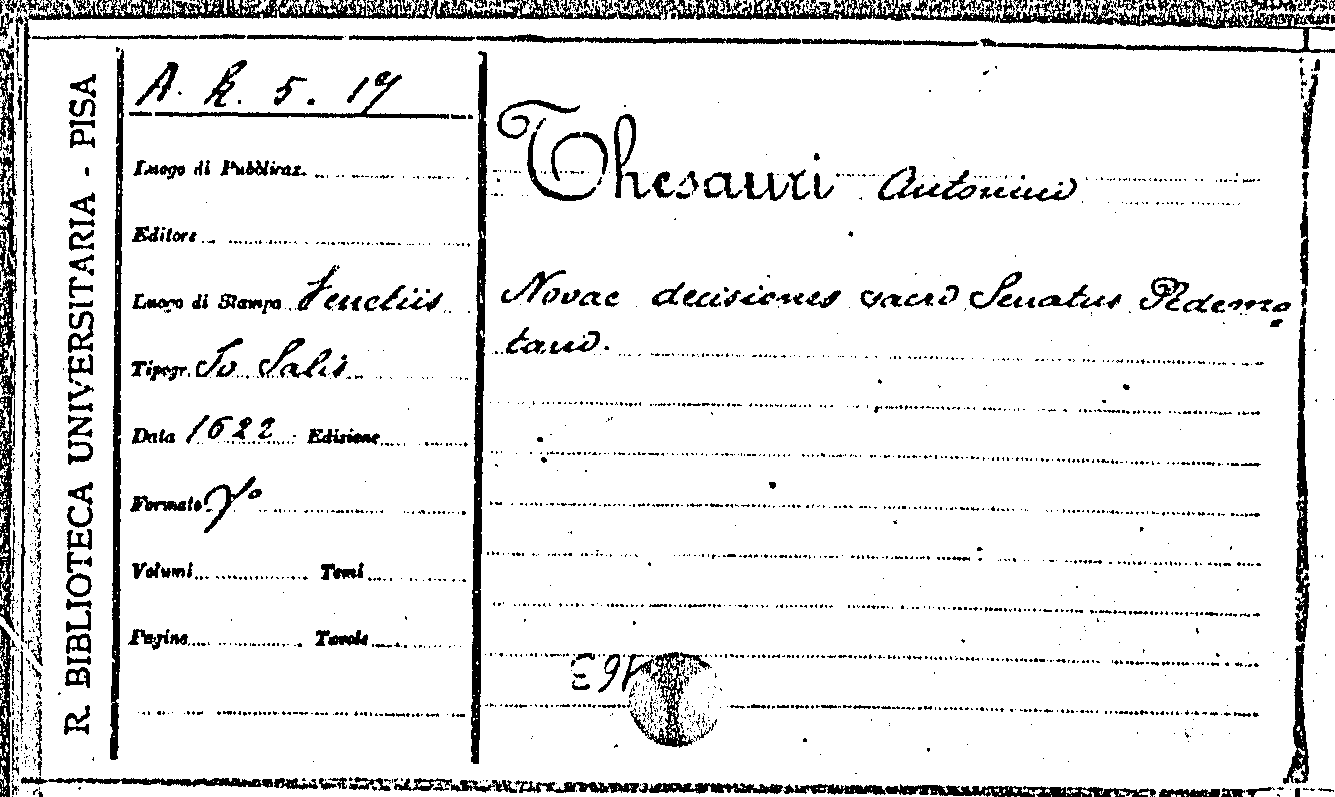 R. BIBLIOTECA UNIVERSITARIA - PISA
A. R. 5. 17
Luogo di Pubblicaz.
Editore
Luogo di Stampa Venetiis
Tipogr. Io Salis
Data 1622 Edizione
Formato
Volumi Tomi
Pagine Tavole
Thesauri Antonini
Novae decisiones sacri Senatus Pedemo
tani.